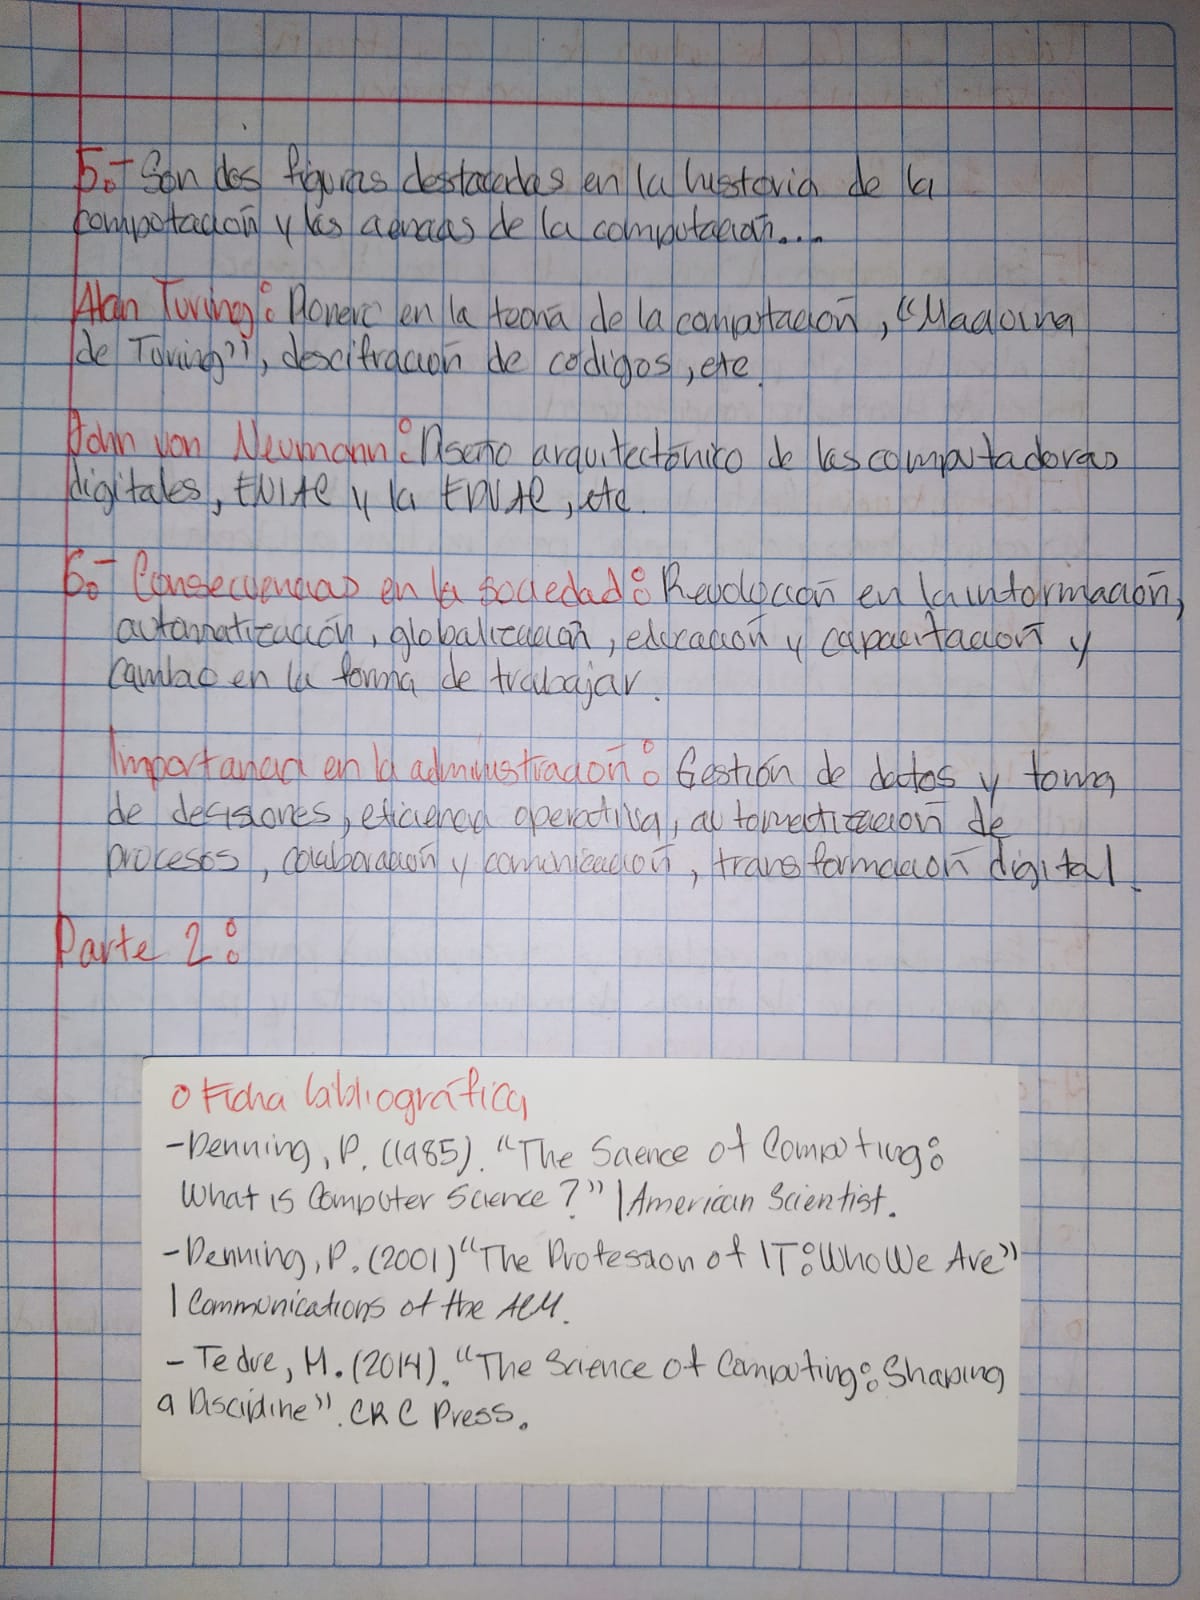 5.- Son dos figuras destacadas en la historia de la
computación y las ciencias de la computación...
Alan Turing: Pionero en la teoría de la computación, "Maquina
de Turing", descifración de codigos, etc.
John von Neumann: Diseño arquitectónico de las computadoras
digitales, ENIAC y la EDVAC, etc.
6.- Consecuencias en la sociedad: Revolución en la información,
automatización, globalización, educación y capacitación y
cambio en la forma de trabajar.
Importancia en la administración: Gestión de datos y toma
de decisiones, eficiencia operativa, automatización de
procesos, colaboración y comunicación, transformación digital.
Parte 2:
○ Ficha bibliográfica
-Denning, P. (1985). "The Science of Computing:
What is Computer Science?" | American Scientist.
-Denning, P. (2001) "The Profession of IT: Who We Are"
| Communications of the ACM.
- Tedre, M. (2014). "The Science of Computing: Shaping
a Discipline". CRC Press.